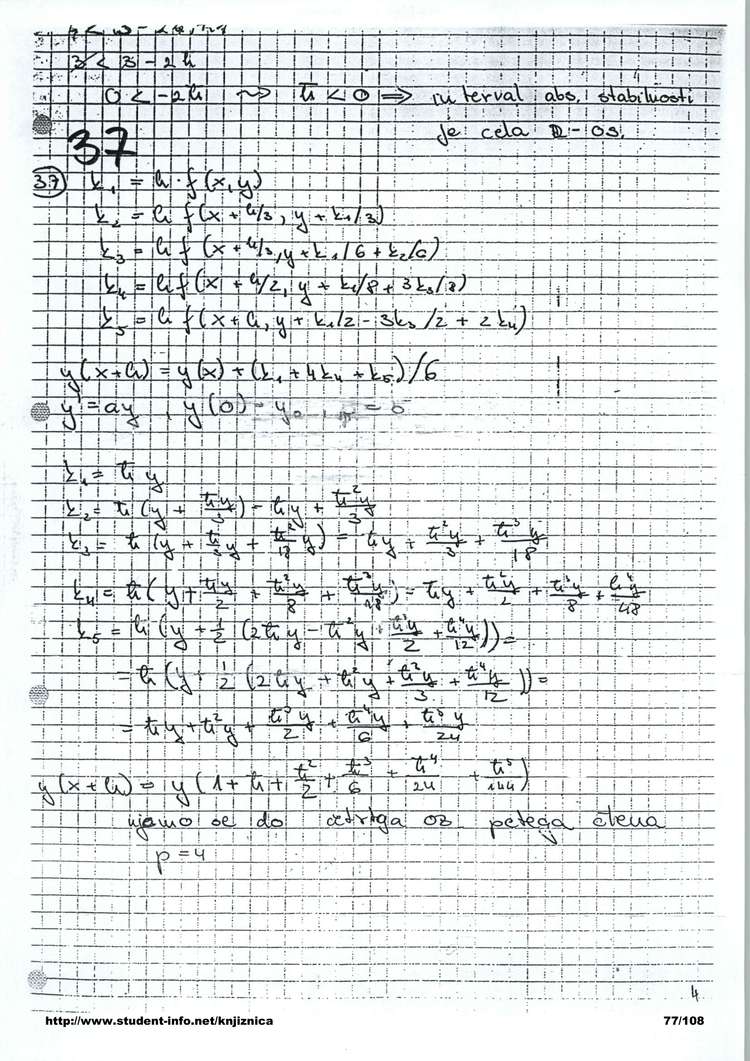 3 < 3 - 2h
0 < -2h ⇝ h̄ < 0 ⇒ interval abs. stabilnosti
je cela R-os.
37
37 k₁ = h·f(x,y)
k₂ = h f(x + h/3, y + k₁/3)
k₃ = h f(x + h/3, y + k₁/6 + k₂/6)
k₄ = h f(x + h/2, y + k₁/8 + 3k₃/8)
k₅ = h f(x + h, y + k₁/2 - 3k₃/2 + 2k₄)
y(x+h) = y(x) + (k₁ + 4k₄ + k₅)/6
y' = ay, y(0) = y₀, = 5
k₁ = h̄ y
k₂ = h̄ (y + h̄y/3) = h̄y + h̄²y/3
k₃ = h̄ (y + h̄/3 y + h̄²/18 y) = h̄y + h̄²y/3 + h̄³y/18
k₄ = h̄ (y + h̄y/2 + h̄²y/8 + h̄³y/48) = h̄y + h̄²y/2 + h̄³y/8 + h̄⁴y/48
k₅ = h̄ (y + 1/2 (2h̄y - h̄²y + h̄³y/2 + h̄⁴y/12)) =
= h̄ (y + 1/2 (2h̄y + h̄²y + h̄²y/3 + h̄⁴y/12)) =
= h̄y + h̄²y + h̄³y/2 + h̄⁴y/6 + h̄⁵y/24
y(x+h) = y(1 + h̄ + h̄²/2 + h̄³/6 + h̄⁴/24 + h̄⁵/144)
ujamo se do četrtga oz. petega člena
p = 4
4
http://www.student-info.net/knjiznica 77/108